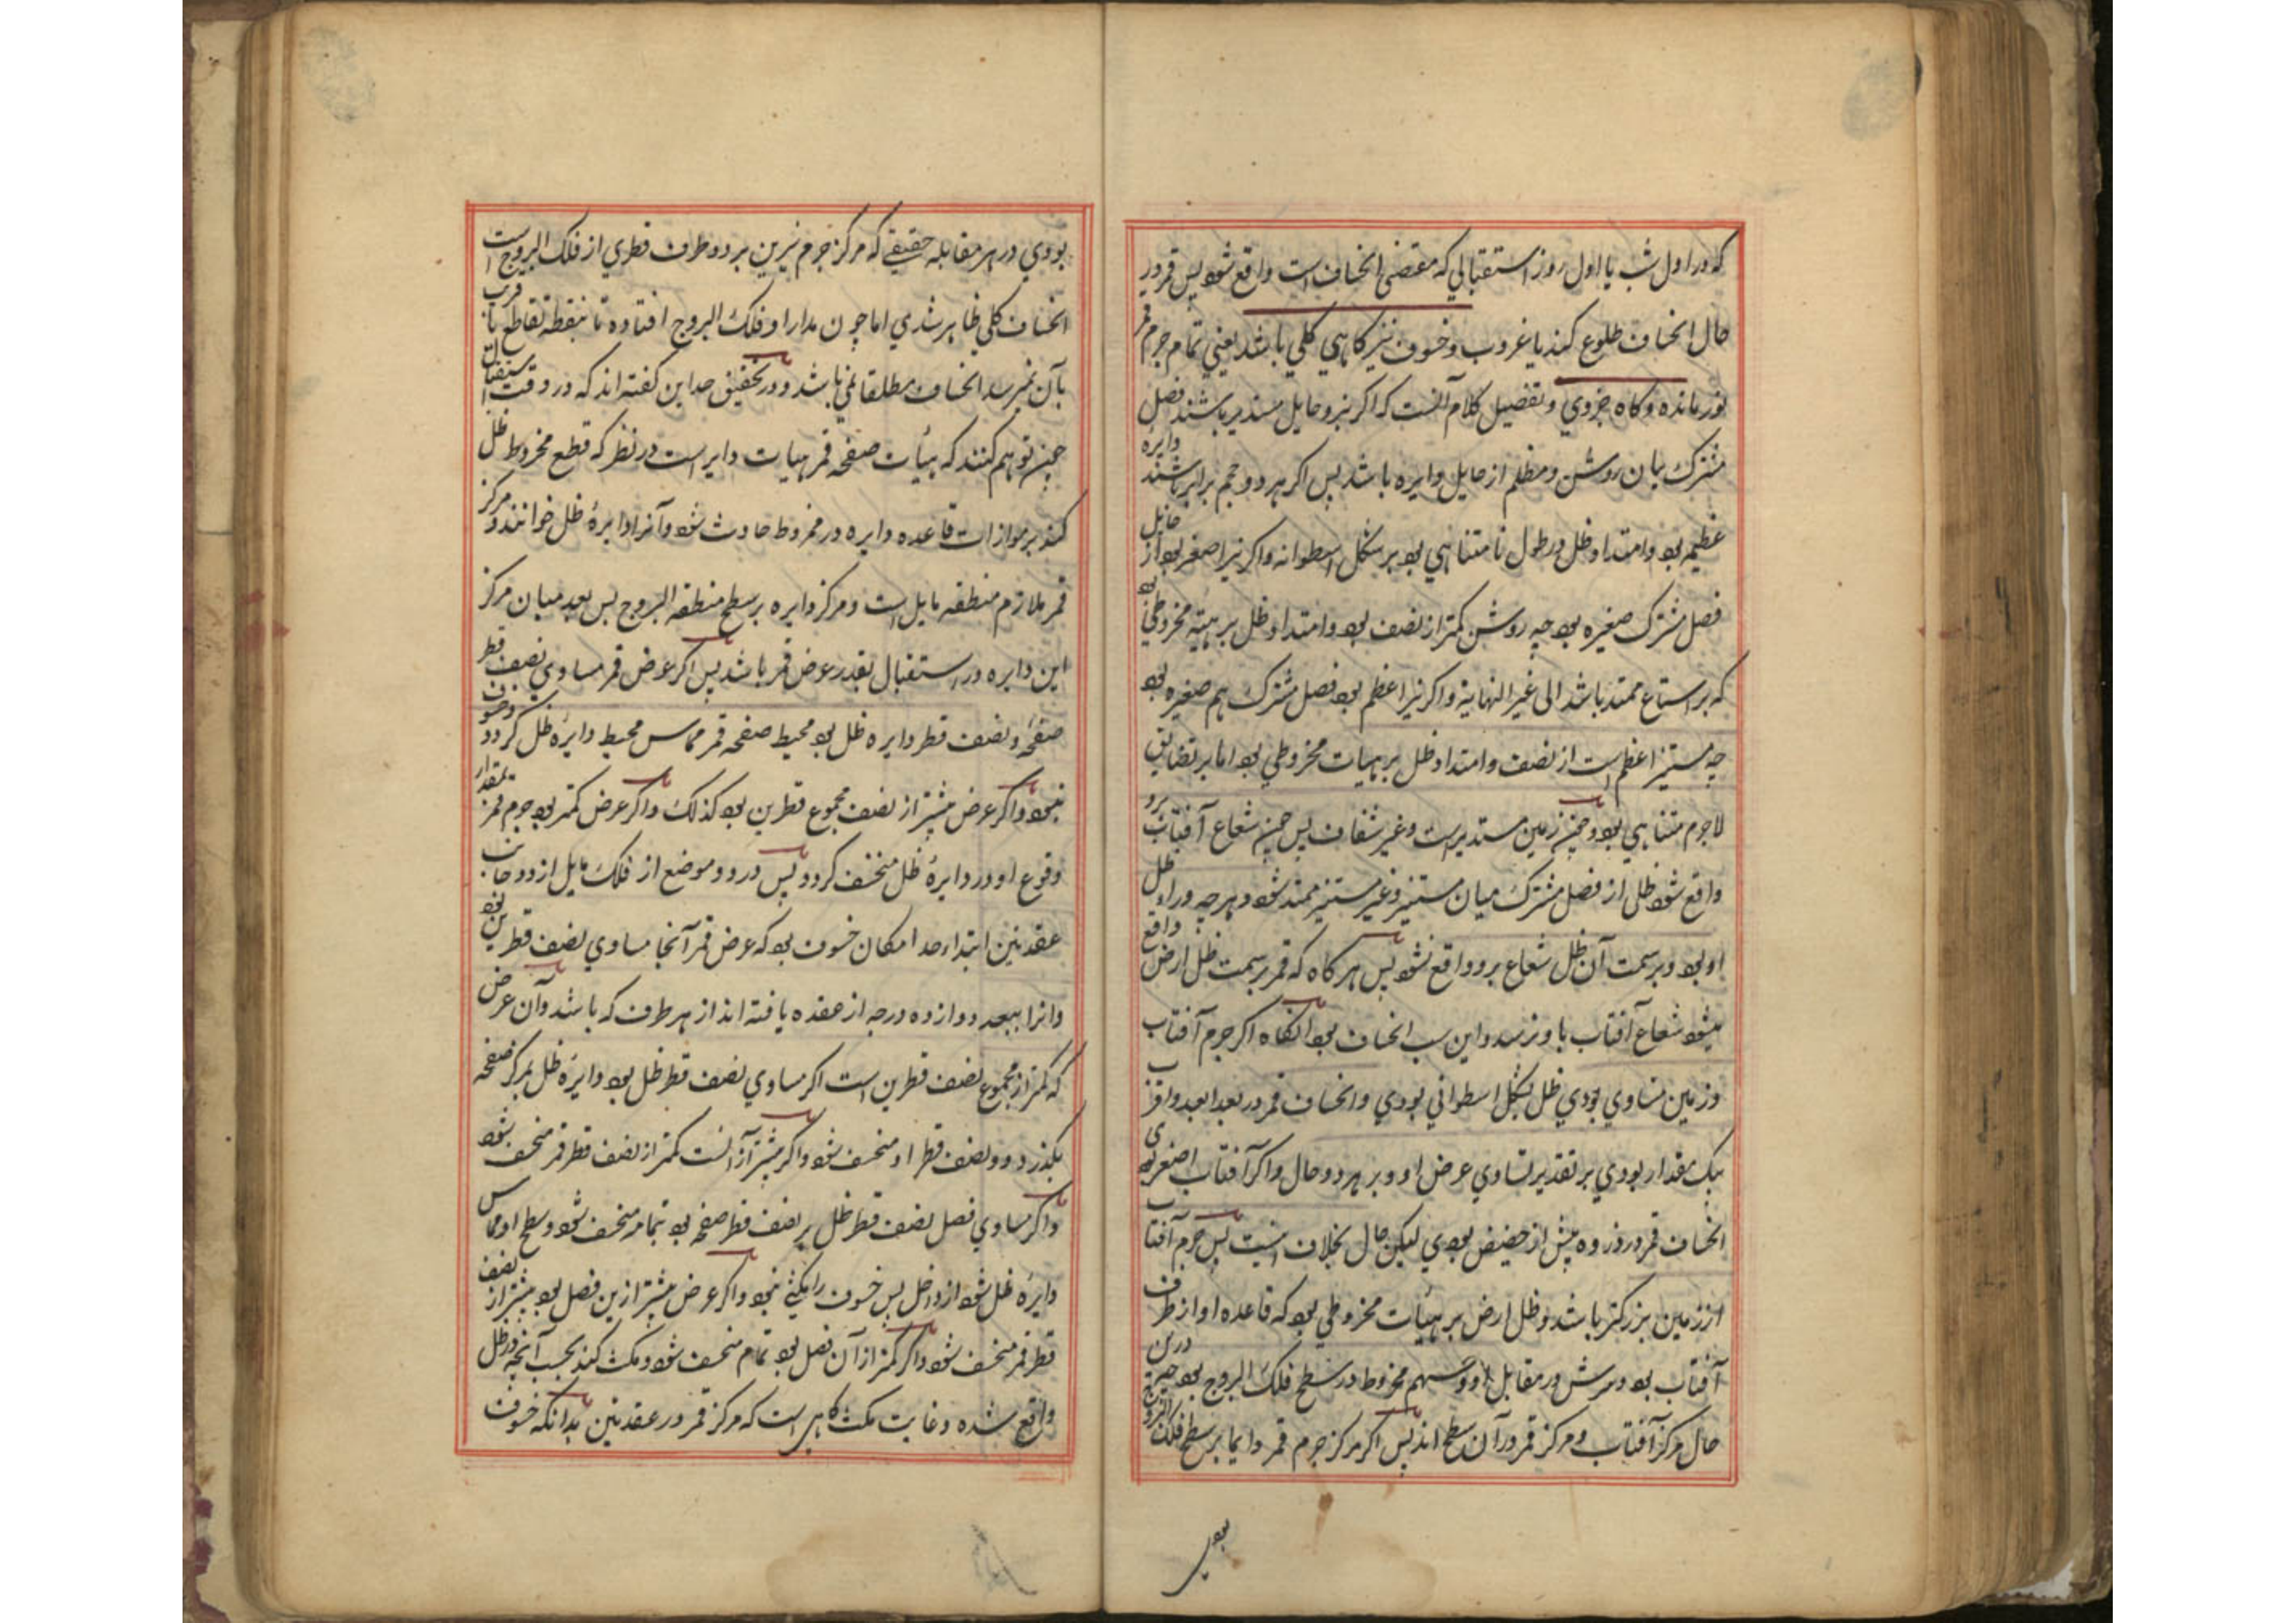 که در اول شب یا اول روز استقبالي که مقتضی انخساف است واقع شود پس قمر در
حال انخساف طلوع کند یا غروب و خسوف نیز کاهي کلي باشد یعني تمام جرم قمر
نور مانده و کاه جزوي و تفصیل کلام آنست که اکر نیر و حایل مستدیر باشند فصل
مشترک میان روشن و مظلم از حایل دایره باشد پس اکر هر دو حجم برابر باشند دایره
عظیمه بود و امتداد ظل در طول نا متناهي بود بر شکل اسطوانه و اکر نیر اصغر بود از حایل
فصل مشترک صغیره بود چه روشن کمتر از نصف بود و امتداد ظل بر هیئة مخروطي بود
که بر اتساع ممتد باشد الی غیر النهایة و اکر نیر اعظم بود فصل مشترک هم صغیره بود
چه مستنیر اعظم است از نصف و امتداد ظل بر هیات مخروطي بود اما بر تضایق
لاجرم متناهي بود و چون زمین مستدیر است و غیر شفاف پس چون شعاع آفتاب برو
واقع شود ظل از فصل مشترک میان مستنیر و غیر مستنیر ممتد شود و هرچه در اول ظل
او بود و بر سمت آن ظل شعاع برو واقع نشود پس هر کاه که قمر بر سمت ظل ارض واقع
میشود شعاع آفتاب باو نرسد و این سبب انخساف بود آنکاه اکر جرم آفتاب
و زمین مساوي بودي ظل بشکل اسطواني بودي و انخساف قمر در بعد ابعد و اقرب
بیک مقدار بودي بر تقدیر تساوي عرض او در هر دو حال و اکر آفتاب اصغر بودی
انخساف قمر در ذروه بیش از حضیض بودي لیکن حال بخلاف اینست پس جرم آفتاب
از زمین بزرکتر باشد و ظل ارض بر هیات مخروطي بود که قاعده او از طرف
آفتاب بود و سرش در مقابل او و سهم مخروط در سطح فلک البروج بود چه درین
حال مرکز آفتاب و مرکز قمر در آن سطح اند پس اکر مرکز جرم قمر دایما بر سطح فلک البروج
بودي
بودي در هر مقابله حقیقي که مرکز جرم نیرین بر دو طرف قطري از فلک البروج است
انخساف کلي ظاهر شدي اما چون مدار او فلک البروج افتاده تا بنقطه تقاطع یا قریب
بآن نمیرسد انخساف مطلقا نمي باشد و در تحقیق حد این کفته اند که در وقت استقبال
چنین توهم کنند که هیأت صفحه قمر هیات دایر است در نظر که قطع مخروط ظل
کند بر موازات قاعده و دایره در مخروط حادث شود و آنرا دایرهٔ ظل خوانند و مرکز
قمر ملازم منطقه مایل است و مرکز دایره بر سطح منطقه البروج پس بعد میان مرکز
این دایره در استقبال بقدر عرض قمر باشد پس اکر عرض قمر مساوي نصف قطر
صفحه و نصف قطر دایره ظل بود محیط صفحه قمر مماس محیط دایرهٔ ظل کردد و خسوف
نبود و اکر عرض بیشتر از نصف مجموع قطرین بود کذلک و اکر عرض کمتر بود جرم قمر بمقدار
وقوع او در دایرهٔ ظل منخسف کردد پس در دو موضع از فلک مایل از دو جانب
عقدتین ابتداء حد امکان خسوف بود که عرض قمر آنجا مساوي نصف قطرین بود
و انرا ببعد دوازده درجه از عقده یافته اند از هر طرف که باشد و آن عرض
که کمتر از مجموع نصف قطرین است اکر مساوي نصف قطر ظل بود دایرهٔ ظل بمرکز صفحه
بکذرد و نصف قطر او منخسف شود و اکر بیشتر از آنست کمتر از نصف قطر قمر منخسف شود
و اکر مساوي فصل نصف قطر ظل بر نصف قطر صفحه بود بتمام منخسف شود و سطح او مماس
دایرهٔ ظل شود از داخل پس خسوف را مکثي نبود و اکر عرض بیشتر ازین فصل بود بیشتر از نصف
قطر قمر منخسف شود و اکر کمتر از آن فصل بود تمام منخسف شود و مکث کند بحسب آنچه در ظل
واقع شده و غایت مکث کاهي است که مرکز قمر در عقدتین بدانکه خسوف